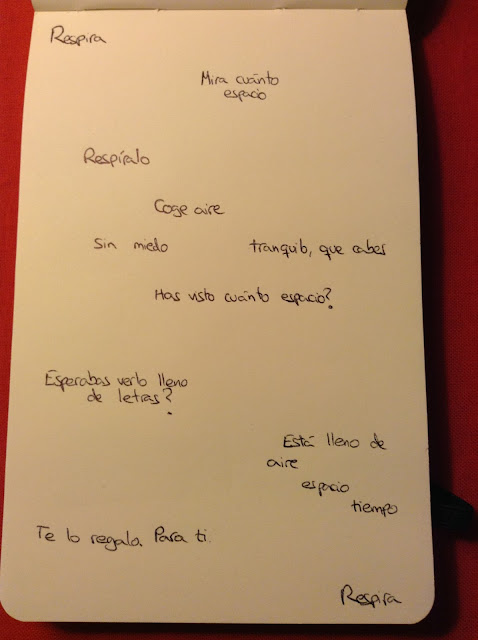 Respira
Mira cuánto
espacio
Respíralo
Coge aire
Sin miedo tranquilo, que cabes
Has visto cuánto espacio?
Esperabas verlo lleno
de letras?
Está lleno de
aire
espacio
tiempo
Te lo regala. Para ti.
Respira